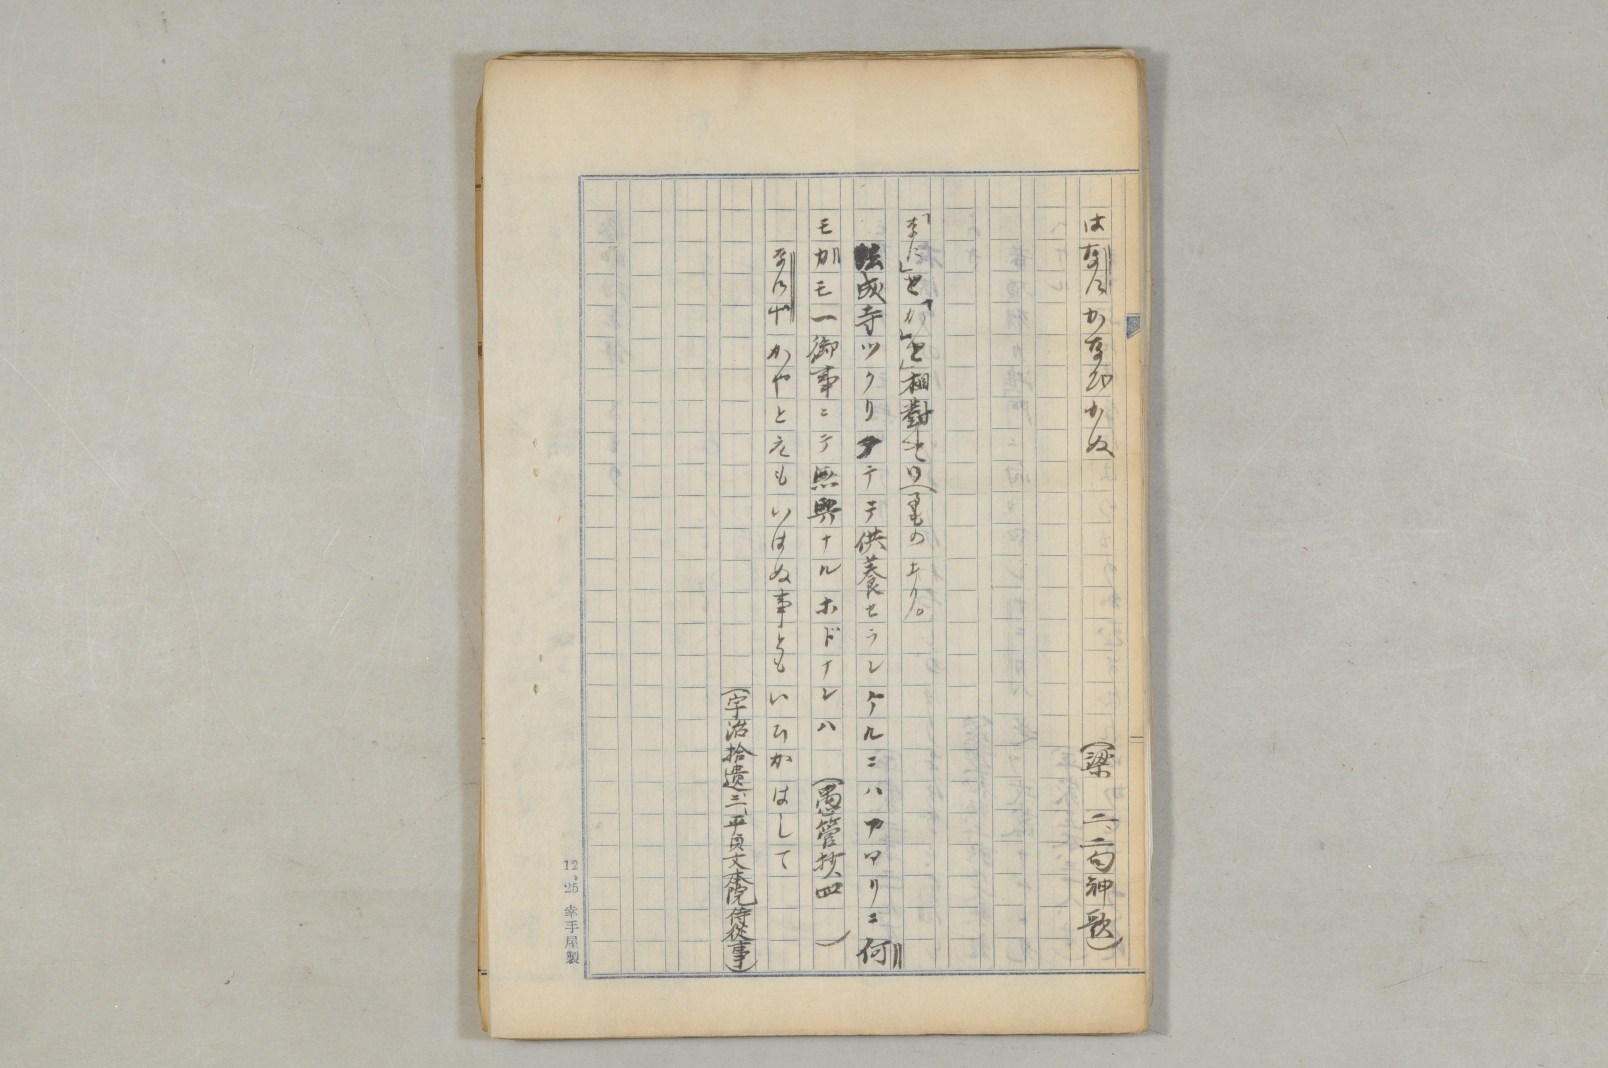 はなにかなひかぬ (梁 二、二句神歌)
「なに」と「か」と相對せるものあり。
法成寺ツクリタテテ供養セラレケルニハアマリニ何
モカモ一御事ニテ無興ナルホドナレハ (愚管抄四)
なにやかやとえもいはぬ事ともいひかはして
(宇治拾遺三、平貞文本院侍從事)
12.25 幸手屋製